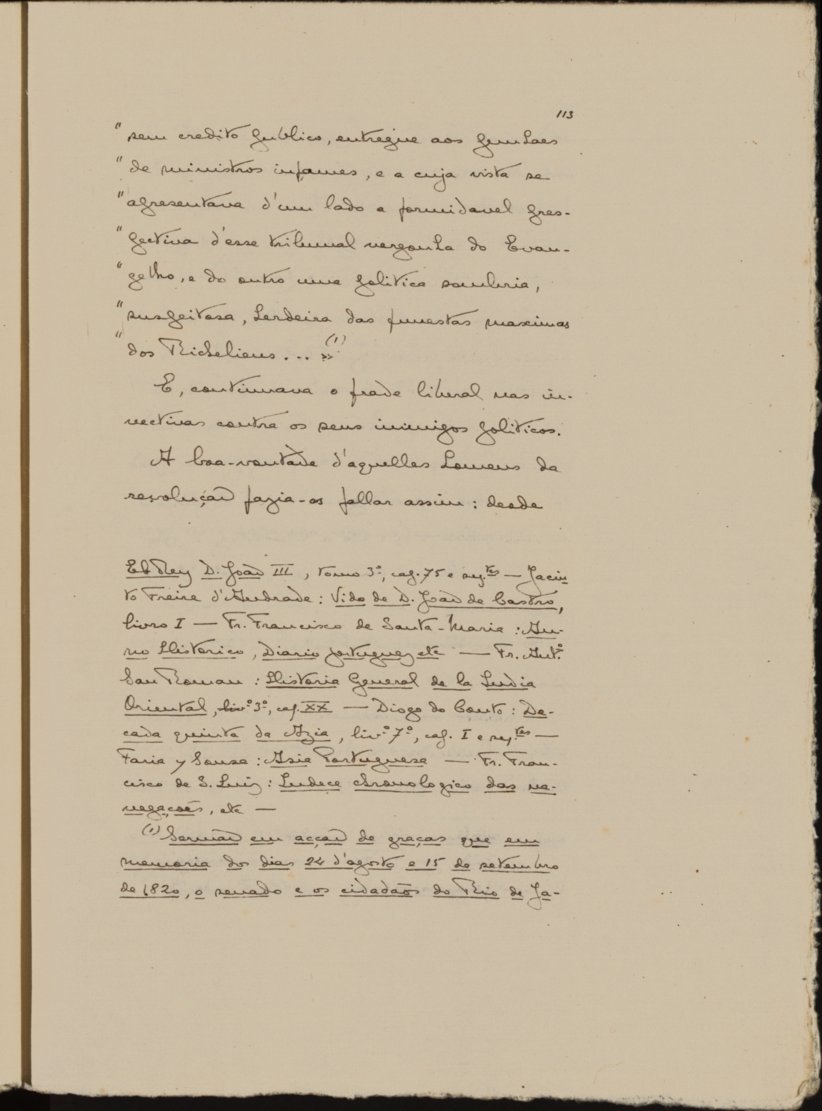 113
"sem credito publico, entregue aos punhaes
"de ministros infames, e a cuja vista se
"apresentava d'um lado a formidavel pres-
"pectiva d'esse tribunal vergonha do Evan-
"gelho, e do outro uma politica sombria,
"suspeitosa, herdeira das funestas maximas
"dos Richelieus... »(1)
E, continuava o frade liberal nas in-
vectivas contra os seus inimigos politicos.
A boa-vontade d'aquelles homens da
revolução fazia-os fallar assim: desde
El-Rey D. João III, tomo 3º, cap. 75 e seg.tes — Jacin-
to Freire d'Andrade: Vida de D. João de Castro,
livro I — Fr. Francisco de Santa-Maria: An-
no Historico, Diario portuguez etc — Fr. Antº
San Roman: Historia General de la Yndia
Oriental, livº 3º, cap. XX — Diogo do Couto: De-
cada quinta da Azia, livº 7º, cap. I e seg.tes —
Faria y Sousa: Asia Portuguesa — Fr. Fran-
cisco de S. Luiz: Indece chronologico das na-
vegações, etc —
(1) Sermão em acção de graças que em
memoria dos dias 24 d'agosto e 15 de setembro
de 1820, o senado e os cidadãos do Rio de Ja-